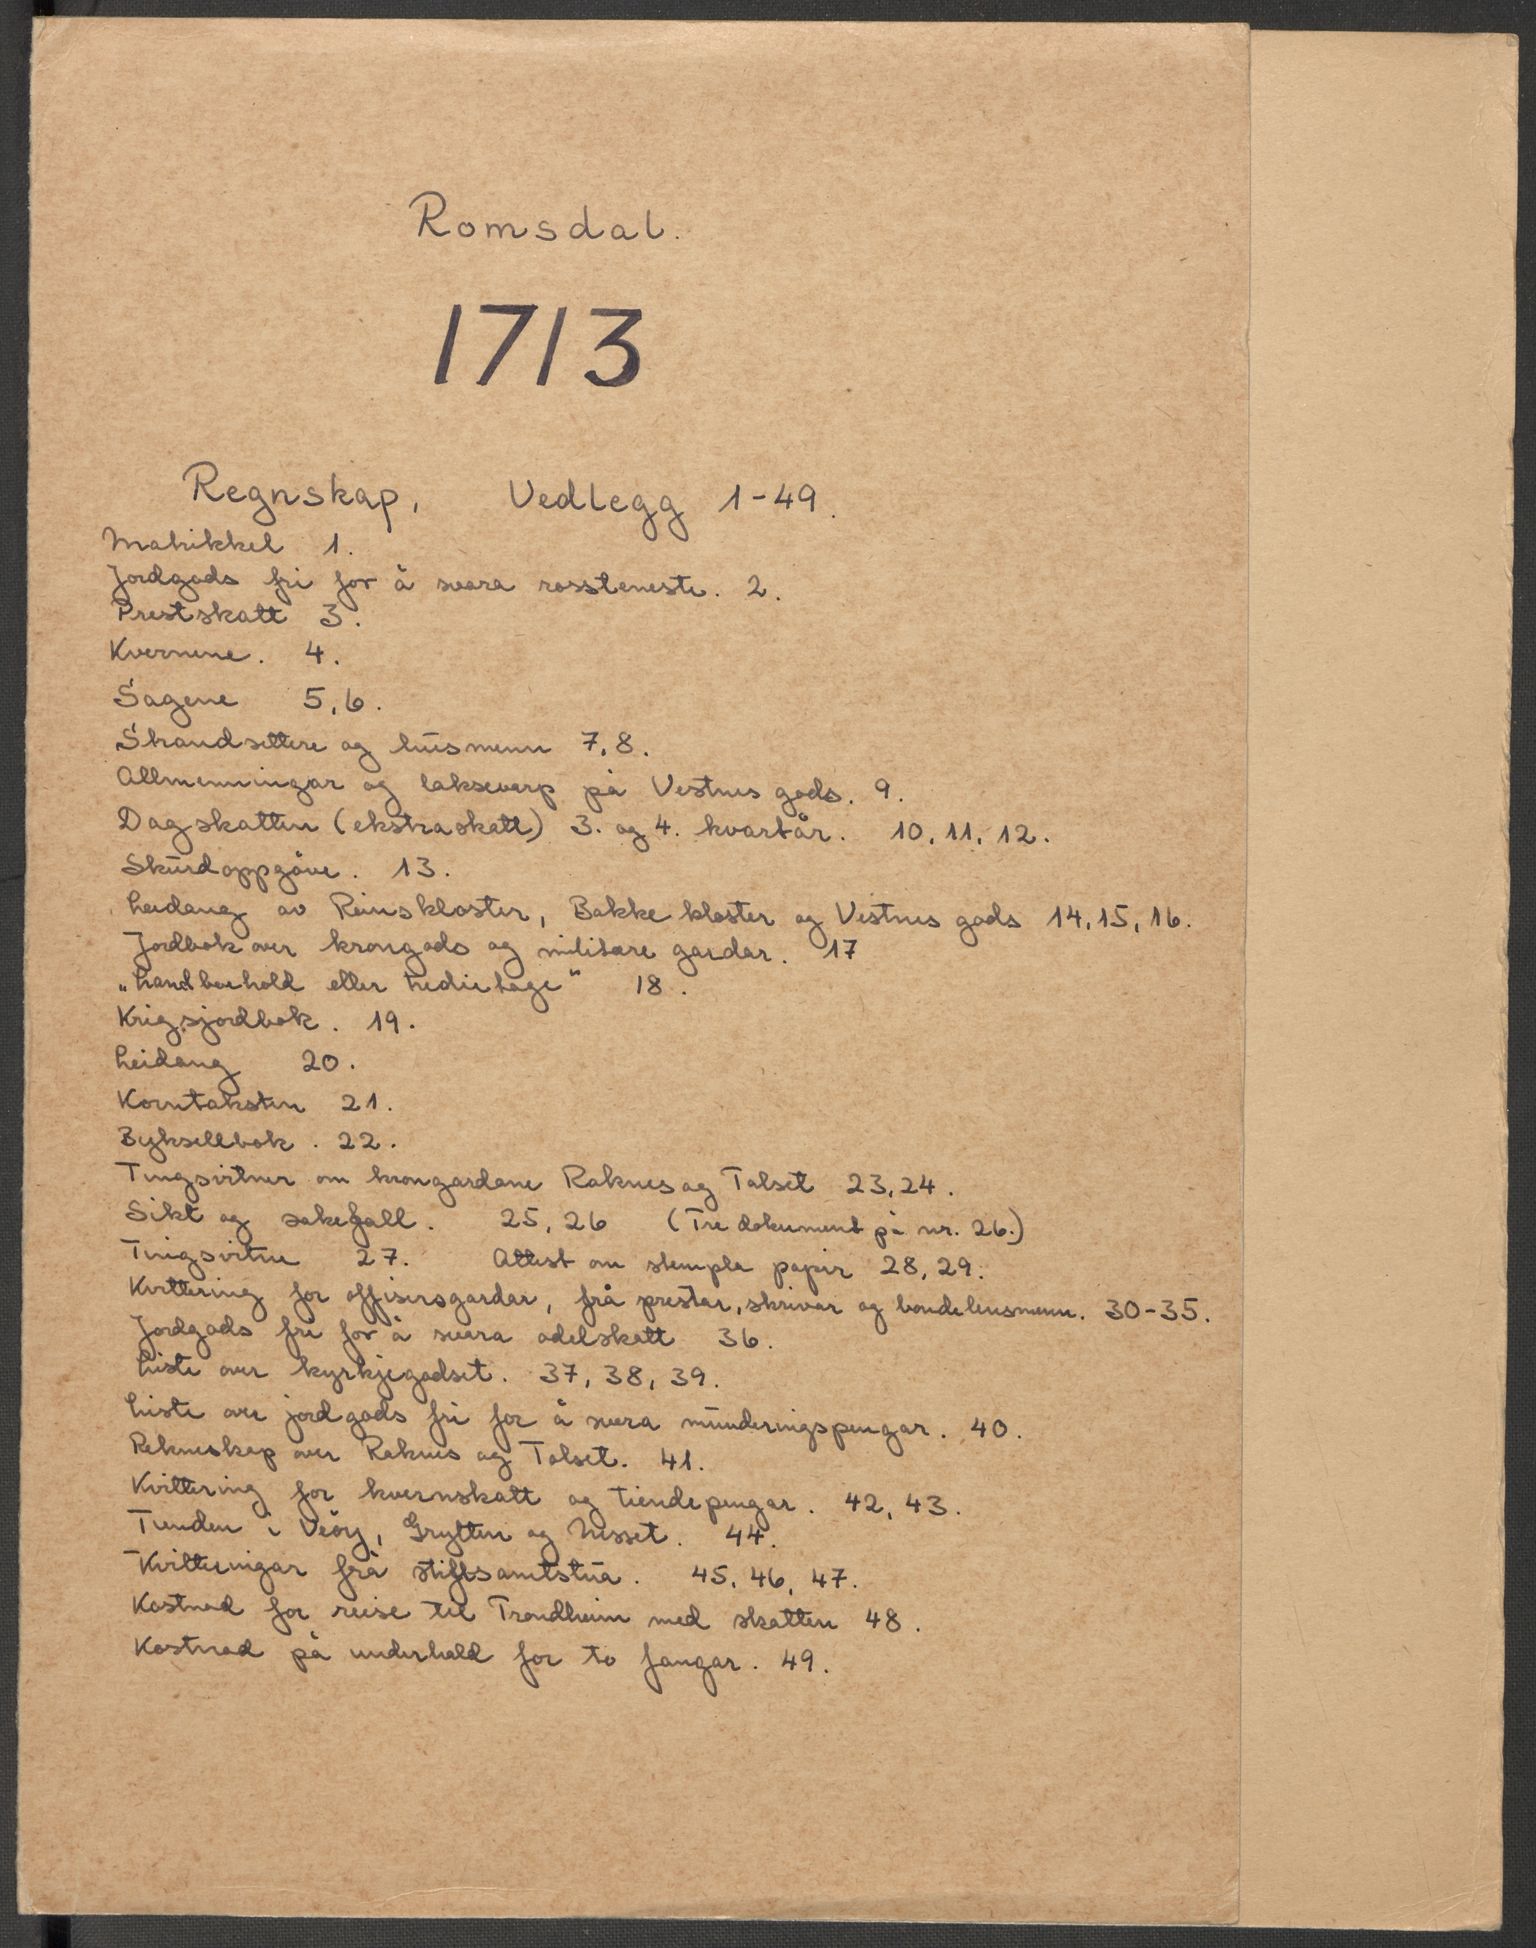 Romsdal.
1713
Regnskap, Vedlegg 1-49.
Matrikkel 1.
Jordgods fri for å svara rossteneste. 2.
Prestskatt 3.
Kvernene. 4.
Sagene 5,6.
Strandsittere og husmenn 7,8.
Allmenningar og laksevarp på Vestnes gods. 9.
Dagskatten (ekstraskatt) 3. og 4. kvartår. 10, 11, 12.
Skurdoppgåve. 13.
Leidang av Reinskloster, Bakke kloster og Vestnes gods 14, 15, 16.
Jordbok over krongods og militære gardar. 17
" eller tredietage" 18.
Krigsjordbok. 19.
Leidang 20.
Korntaksten 21.
Byksellbok. 22.
Tingsvitner om krongardane Raknes og Talset 23,24.
Sikt og sakefall. 25, 26 (Tre dokument på nr. 26.)
Tingsvitne 27. Attest om stempla papir 28, 29.
Kvittering for offisersgardar, frå prestar, skrivar og bondelensmenn. 30-35.
Jordgods fri for å svara odelskatt 36.
Liste over kyrkjegodset. 37, 38, 39.
Liste over jordgods fri for å svara munderingspengar. 40.
Rekneskap over Raknes og Talset. 41.
Kvittering for kvernskatt og tiendepengar. 42, 43.
Tienden i Veøy, Grytten og Nesset. 44.
Kvitteringar frå stiftsamtstua. 45, 46, 47.
Kostnad for reise til Trondheim med skatten 48.
Kostnad på underhald for to fangar. 49.